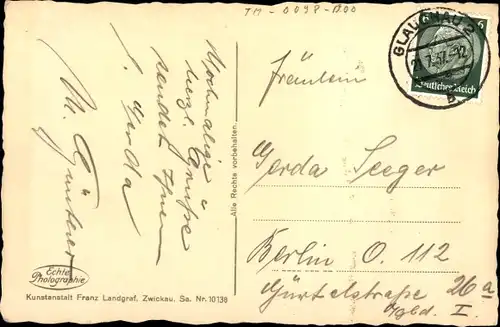 TM-0098-1200
Nochmalige
herzl. Grüße
sendet Ihnen
l. Gerda
M. Günther
Echte
Photographie
Kunstanstalt Franz Landgraf, Zwickau. Sa. Nr. 10138
Alle Rechte vorbehalten.
GLAUCHAU 2
21.7.37.-12
6 6
Deutsches Reich
Fräulein
Gerda Seeger
Berlin O. 112
Gürtelstraße 26a
I.